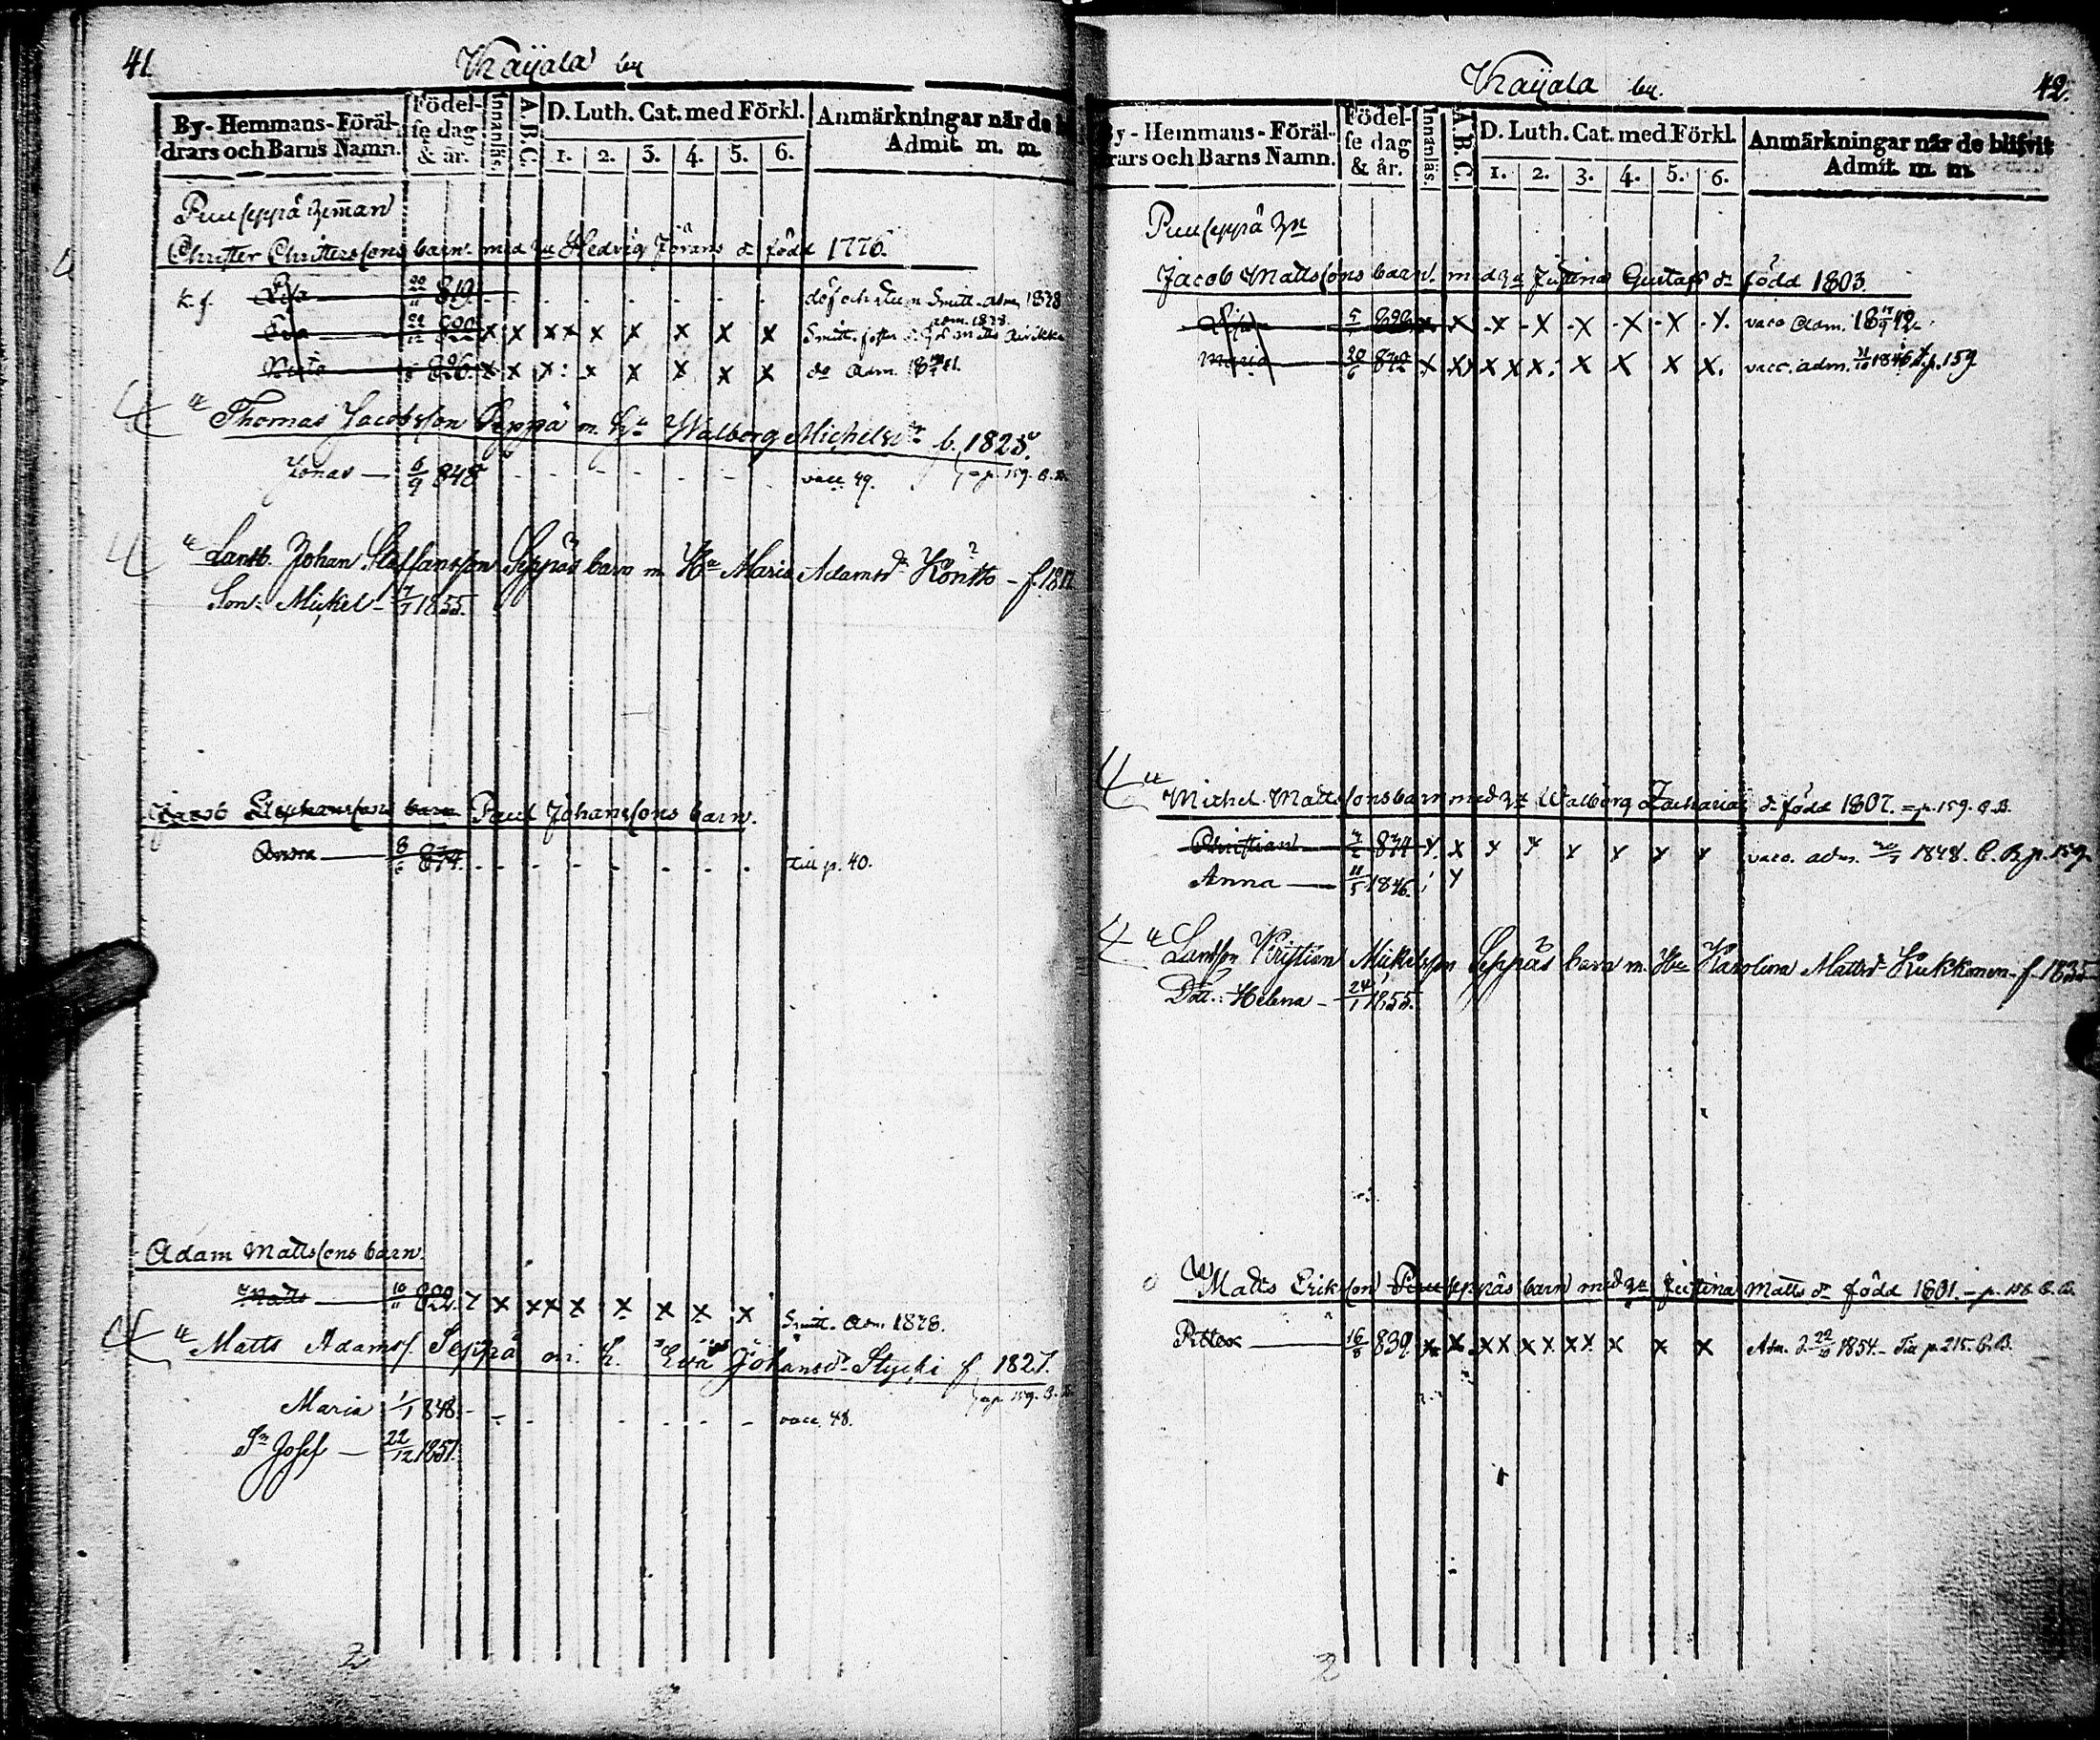 41
Kaijala by
By-Hemmans-Föräl-
drars och Barns Namn.
Födel-
se dag
& år.
Innanläs.
A.B.C.
D. Luth. Cat. med Förkl.
1. 2. 3. 4. 5. 6.
Anmärkningar när de
Admit. m. m.
Puuseppä
Christer Christerssons barn med Hu Hedvig Jörans dr född 1776.
k.f. Lisa 819. - - - - - - - 1838
Eva x x x x x x x x x adm. 1838.
826. x x x x x x x x do adm.
Thomas Jacobsson Seppä m. Hu Walborg Michelsdr f. 1823.
Jonas — 6/9 848 - - - - - - vacc. 49. = p. 159. C.B.
Johan Staffansson Seppäs barn m. Hu Maria Adamsdr Köntto - f.
Son: Mickel - 1855.
Jacob Stephanssons barn Paul Johanssons barn.
8/6 - - - - - - - - till p. 40.
Adam Mattssons barn.
Matts — 10/11 822. x x xx x x x x x Smitt. Adm. 1838.
Matts Adamss. Seppä m. h. Eva Johansdr Stycki f 1827.
= p. 159. C.B.
Maria 1/1 848. - - - - - - - vacc. 48.
Sn Josef — 22/12 1851.
42.
Kaijala by.
By-Hemmans-Föräl-
drars och Barns Namn.
Födel-
se dag
& år.
Innanläs.
A.B.C.
D. Luth. Cat. med Förkl.
1. 2. 3. 4. 5. 6.
Anmärkningar när de blifvit
Admit. m. m.
Puuseppä
Jacob Mattssons barn. med Hu Justina Gustafs dr född 1803.
Lisa x x x x x x x x vacc Adm.
Maria x xx x x x x x x x x. vacc. adm. p. 159
Michel Mattssons barn med Hu Walborg Zacharias dr född 1807. = p. 159. C.B.
Christian x x x x x x x x vacc. adm. 1848. C.B. p. 159.
Anna — 11/5 1846.
Kristian Mickelsson Seppäs barn m. Hu Karolina Mattsdr Kukkonen - f. 1835
Dott.: Helena - 24/1 1855.
Matts Eriksson Puuseppäs barn med Hu Justina Matts dr född 1801. - p. 158. C.B.
Petter — 16/8 839. x x xx xx xx x x x Adm. d. 22/10 1854. - Till p. 215. C.B.